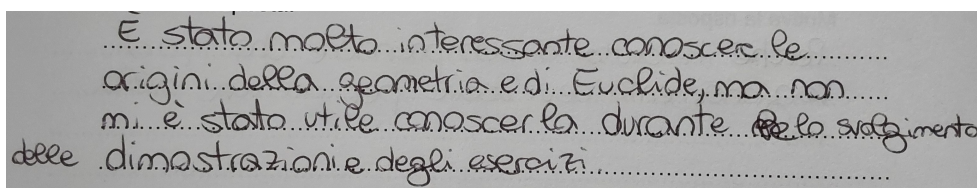 È stato molto interessante conoscere le
origini della geometria e di Euclide, ma non
mi è stato utile conoscerla durante lo svolgimento
delle dimostrazioni e degli esercizi